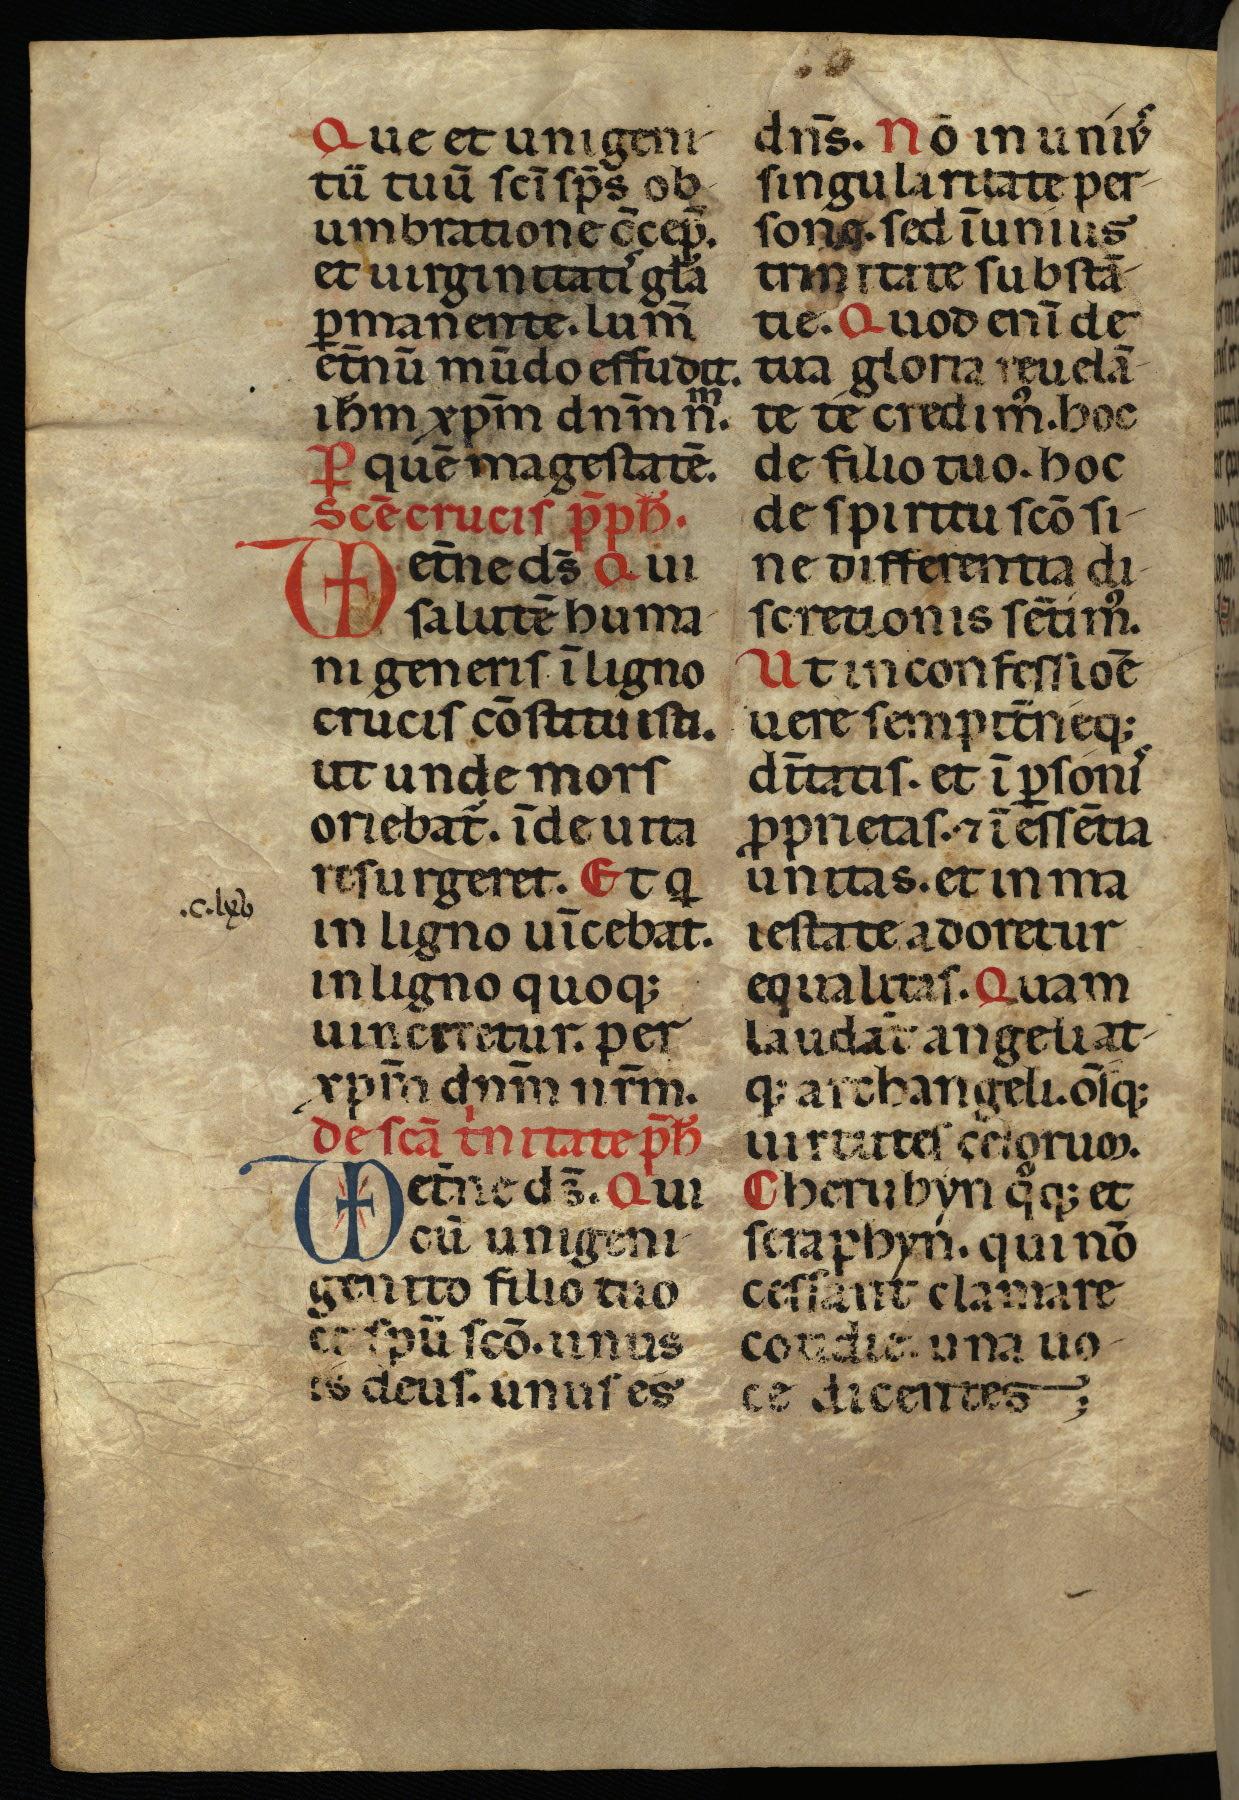 Que et unigeni
tū tuū sc̄i sp̄s ob
umbratione c̄cep̄.
et uirginitati gl̄a
ꝑmanente. lum̄
et̄nū mūdo effudit.
ih̄m xp̄m dn̄m n̄m.
P quē magestatē.
Scē crucis p̄ph̄.
VD et̄ne ds̄ Qui
salutē huma
ni generis ī ligno
crucis cōstituisti.
ut unde mors
oriebat̄. īde uita
resurgeret. Et q
in ligno uīcebat.
in ligno quoq;
uinceretur. per
xp̄m dn̄m nr̄m.
de scā tinitate p̄h
VD et̄ne ds̄. Qui
cū unigeni
genito filio tuo
et spū scō. unus
es deus. unus es
.c.lxv
dn̄s. Nō in uniꝰ
singularitate per
sonę. sed ī unius
trinitate substā
tie. Quod enī de
tua gloria reuelā
te te credimꝰ. hoc
de filio tuo. hoc
de spiritu scō si
ne differentia di
scretionis sētimꝰ.
Ut in confessiōe
uere sempit̄neq;
dītatis. et ī ꝑsonis
ꝓprietas. ⁊ ī essētia
unitas. et in ma
iestate adoretur
equalitas. Quam
laudāt angeli at
q; archangeli. ōīsq;
uirtutes celorum.
Cherubyn qͦq; et
seraphyn. qui nō
cessant clamare
cotidie. una uo
ce dicentes;